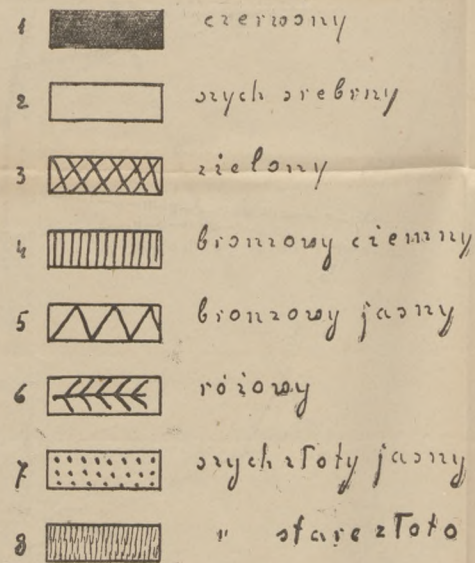 1 czerwony
2 szych srebrny
3 zielony
4 bronzowy ciemny
5 bronzowy jasny
6 różowy
7 szych złoty jasny
8 " stare złoto